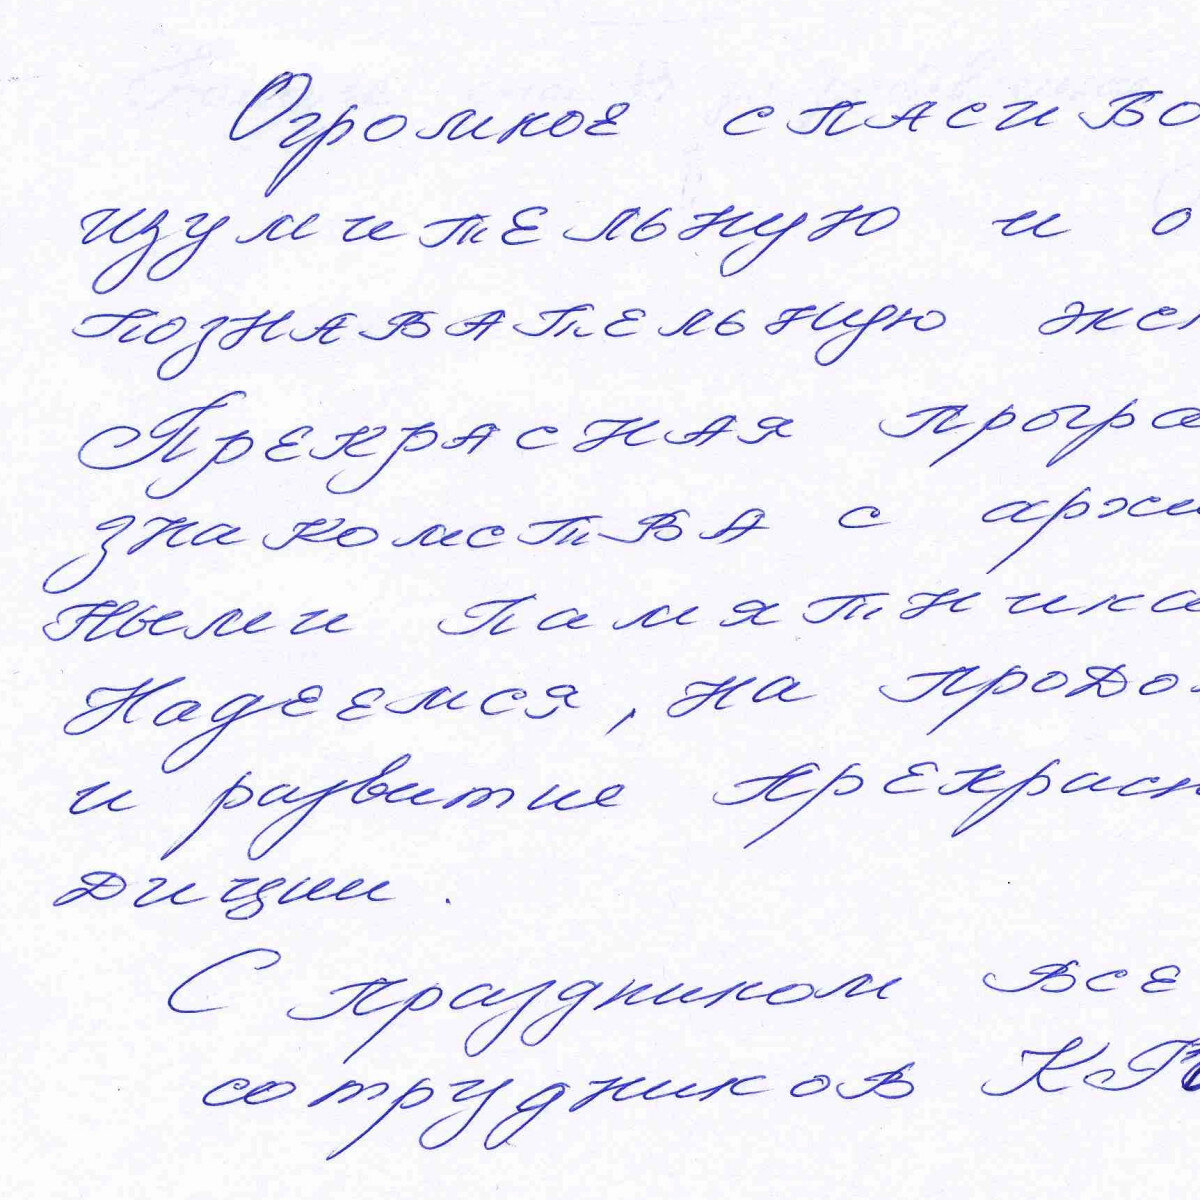 Огромное спасибо
изумительную и о
познавательную экс
Прекрасная програ
знакомства с архи
ными памятника
Надеемся, на продо
и развитие прекрасн
диции.
С праздником все
сотрудников КГ